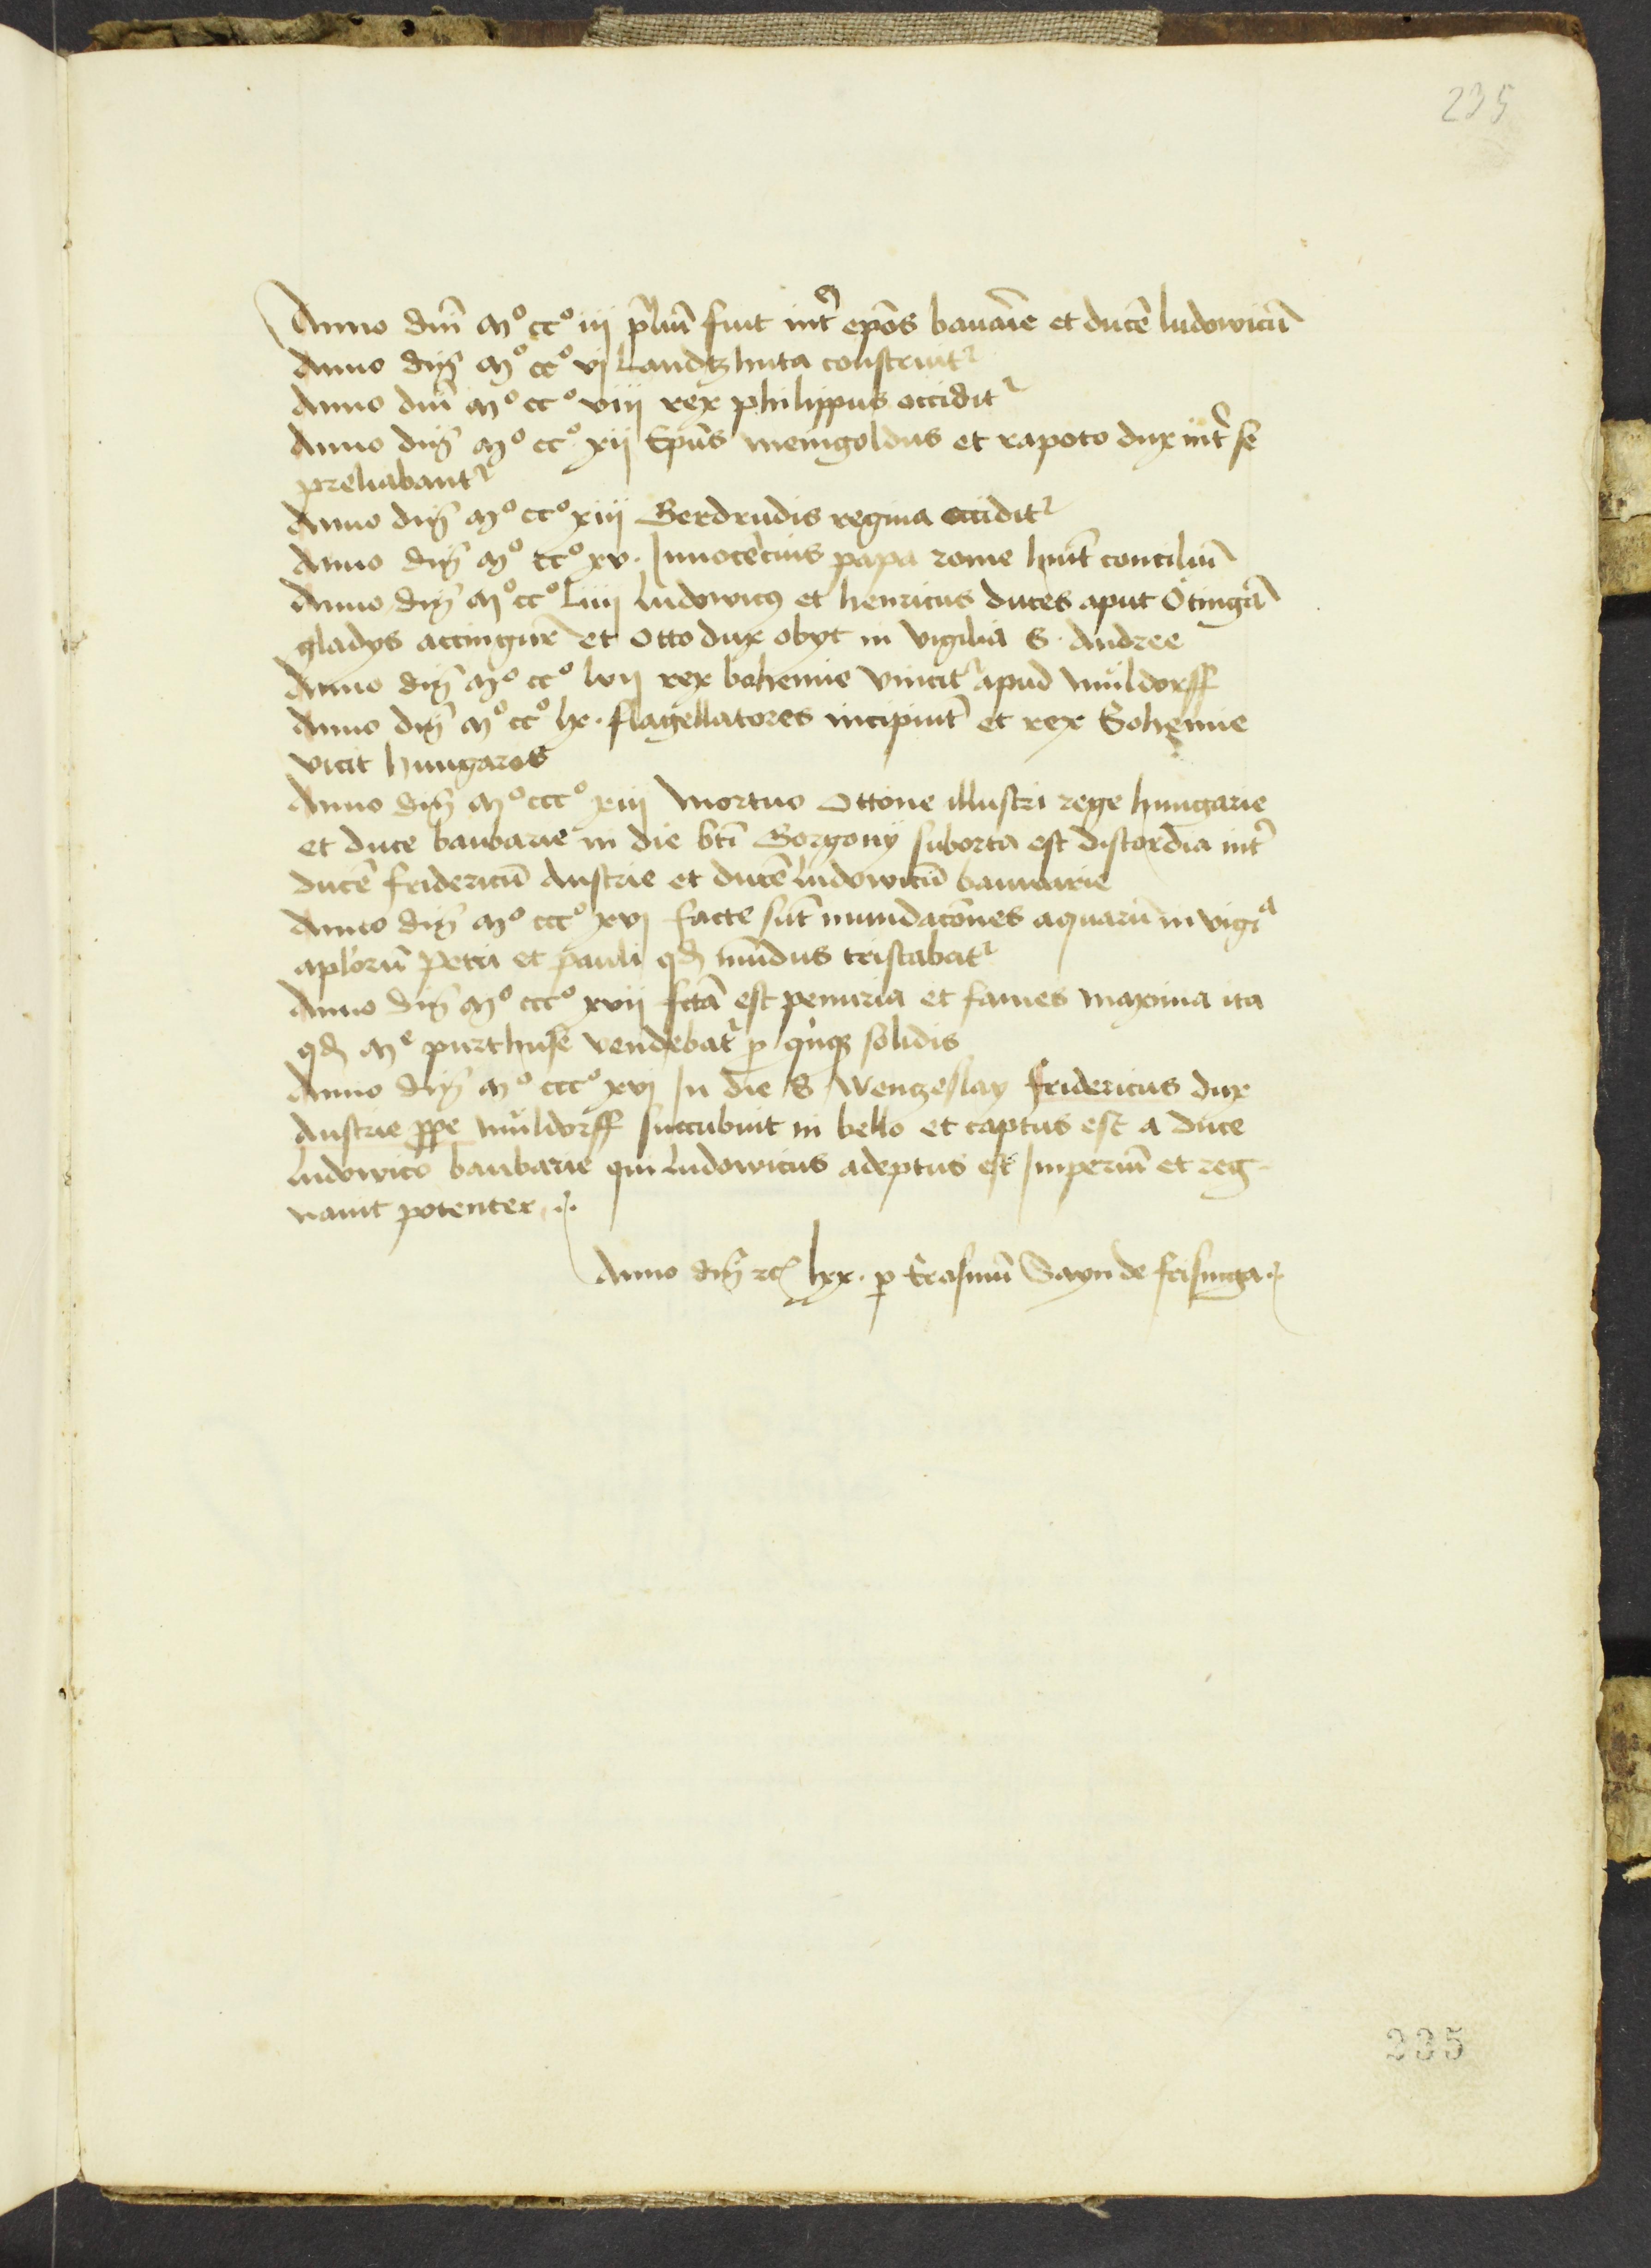 235
Anno dnī Mº ccº iij p̄liū fuit int̄ epōs bauaīe et ducē ludowicū
Anno dn̄ Mº ccº vj Landtzhuta construit᷑
Anno dnī Mº ccº viij rex philippus occidit᷑
Anno dn̄ Mº ccº xij Epūs meingoldus et rapoto dux int̄ se
preliabant᷑
Anno dn̄ Mº ccº xiij Gerdrudis regina occidit᷑
Anno dn̄ Mº ccº xv. Innocēcius papa rome hūit conciliū
Anno dn̄ Mº ccº Liiij ludowicꝰ et henricus duces aput Otingā
gladys accingūr et Otto dux obyt in vigilia S. Andree
Anno dn̄ Mº ccº lvij rex bohemie vincit᷑ apud Müldorff
Anno dn̄ Mº ccº lx. flagellatores incipiūt et rex Bohemie
vicit hungaros
Anno dn̄ Mº cccº xiij Mortuo Ottone illustri rege hungarie
et duce bauarie in die btī Gorgonij suborta est discordia int̄
ducē fridericū Austrie et ducē Ludowicū bauuarie
Anno dn̄ Mº cccº xvj facte sūt inundacōnes aquarū in vigiᵃ
aplōrū Petri et pauli qd̄ mūdus tristabat᷑
Anno dn̄ Mº cccº xvij fctā est penuria et fames maxima ita
qd̄ Mᵉ purkhuse vendebat᷑ ꝑ qͥnqꝫ solidis
Anno dn̄ Mº cccº xvj In die S. Wenzeslay fridericus dux
Austrie ꝓpe müldorff succubuit in bello et captus est a duce
ludowico baubarie qui ludowicus adeptus est Imperiū et reg-
nauit potenter .:.
Anno dn̄ rc̄ lxx. ꝑ Erasmū Sayn de frisinga.:.
235